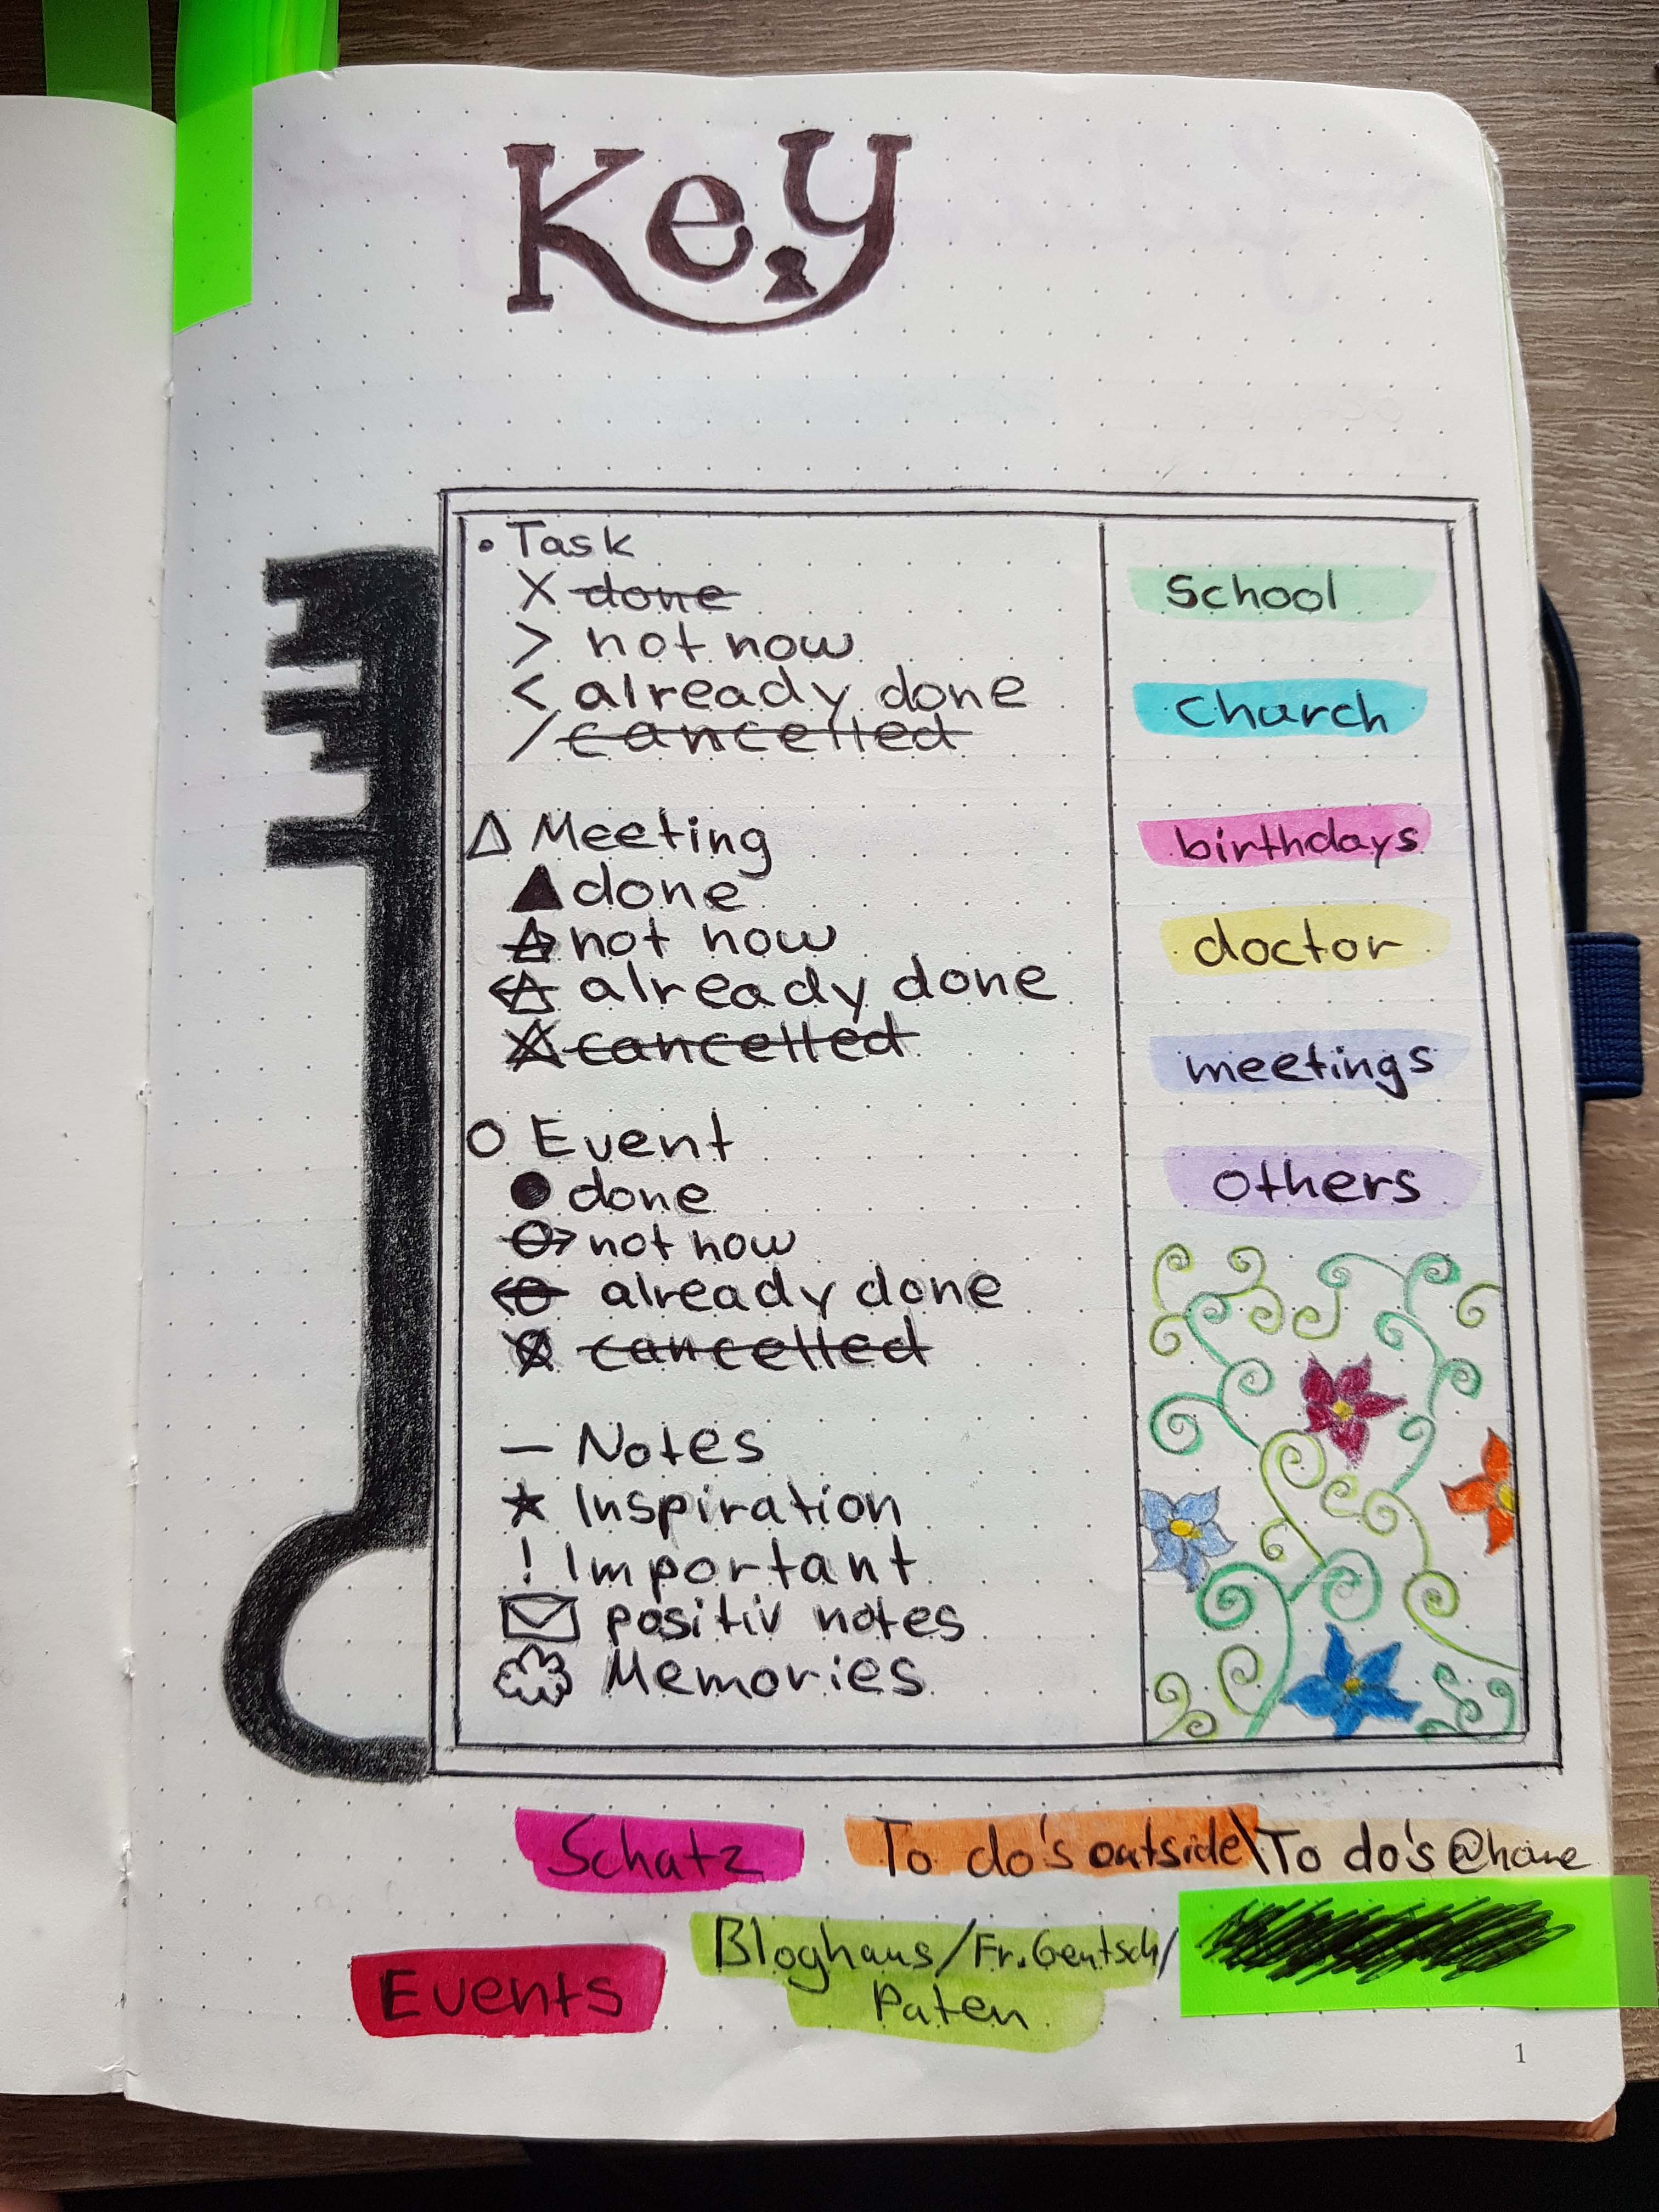 Key
• Task
X done
> not now
< already done
/ cancelled
△ Meeting
▲ done
not now
already done
cancelled
○ Event
● done
not now
already done
cancelled
— Notes
★ Inspiration
! Important
positiv notes
Memories
School
church
birthdays
doctor
meetings
others
Schatz
To do's outside\To do's @home
Events
Bloghaus/Fr. Gentsch/
Paten
1